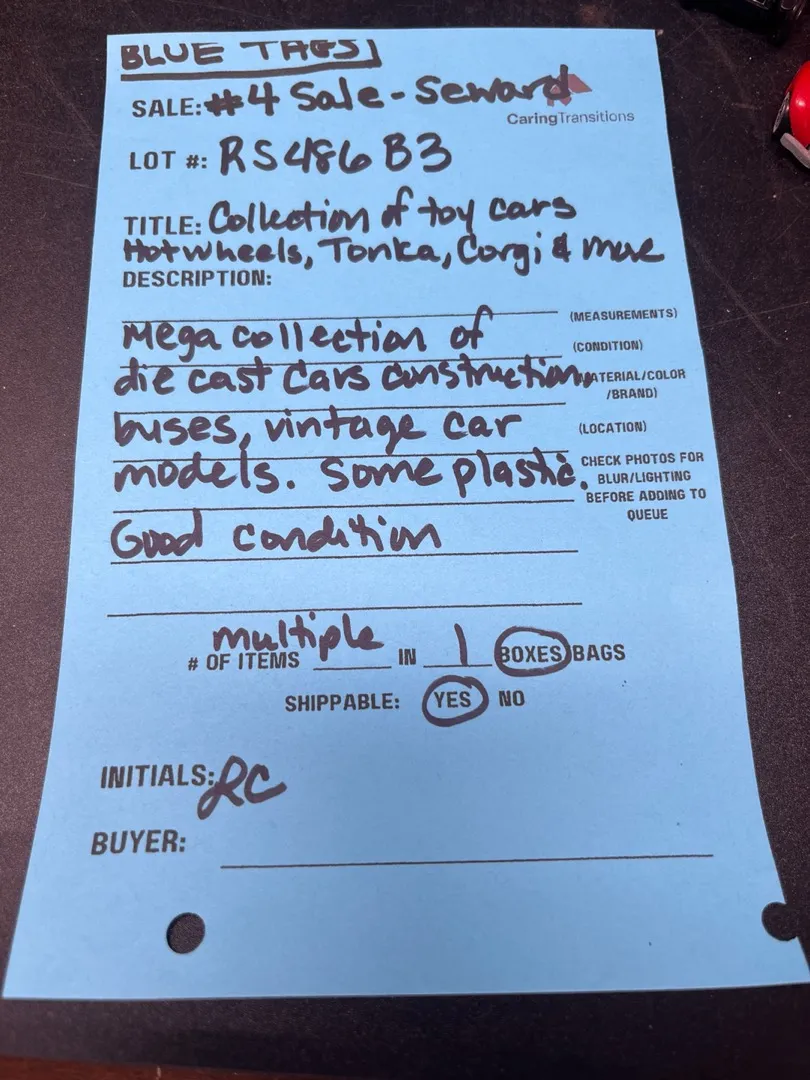 BLUE TAGS
SALE: #4 Sale - Seward
CaringTransitions
LOT #: RS486 B3
TITLE: Collection of toy cars
Hotwheels, Tonka, Corgi & more
DESCRIPTION:
(MEASUREMENTS)
Mega collection of
(CONDITION)
die cast cars construction,
ATERIAL/COLOR
/BRAND)
buses, vintage car
(LOCATION)
models. Some plastic.
CHECK PHOTOS FOR
BLUR/LIGHTING
BEFORE ADDING TO
QUEUE
Good condition
# OF ITEMS multiple IN 1 BOXES BAGS
SHIPPABLE: YES NO
INITIALS: RC
BUYER: